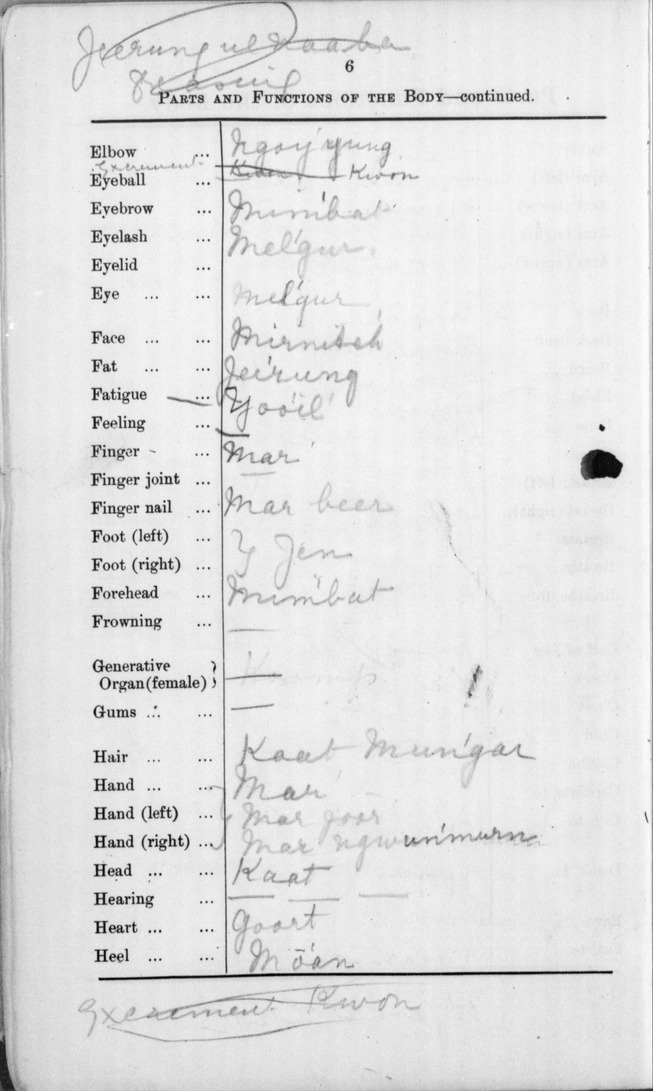 6
PARTS AND FUNCTIONS OF THE BODY—continued.
Elbow ... Ngony'yung
Excrement Kwon
Eyeball ...
Eyebrow ... Mim'bat
Eyelash ... Mel'gur
Eyelid ...
Eye ... ... Mel'gur
Face ... ... Mirnitch
Fat ... ... Jei'rung
Fatigue ... Yoo'il
Feeling ...
Finger - ... Mar
Finger joint ... —
Finger nail ... Mar beer
Foot (left) ... } Jen
Foot (right) ...
Forehead ... Mim'bat
Frowning ... —
Generative
Organ (female) } —
Gums ... ... —
Hair ... ... Kaat Mun'gar
Hand ... ... Mar
Hand (left) ... Mar joor
Hand (right) ... Mar ngwun'murn
Head ... ... Kaat
Hearing ... — — —
Heart ... ... Goort
Heel ... ... Mō'an
Excrement Kwon